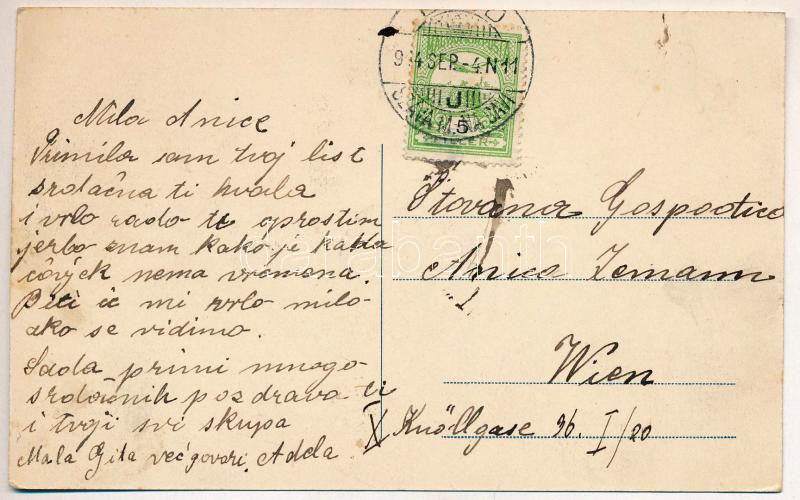 Mila Anice
Primila sam tvoj list
srdačna ti hvala
i vrlo rado ti oprostim
jerbo znam kako je kada
čovjek nema vremena.
Biti će mi vrlo milo
ako se vidimo.
Sada primi mnogo
srdačnih pozdrava ti
i tvoji svi skupa
Mala Gita već govori, Adela
914 SEP -4. N 11
J
5
FILLER
Štovana Gospodica
Anica Zemann
Wien
X Knöllgase 36. I/20
darabanth